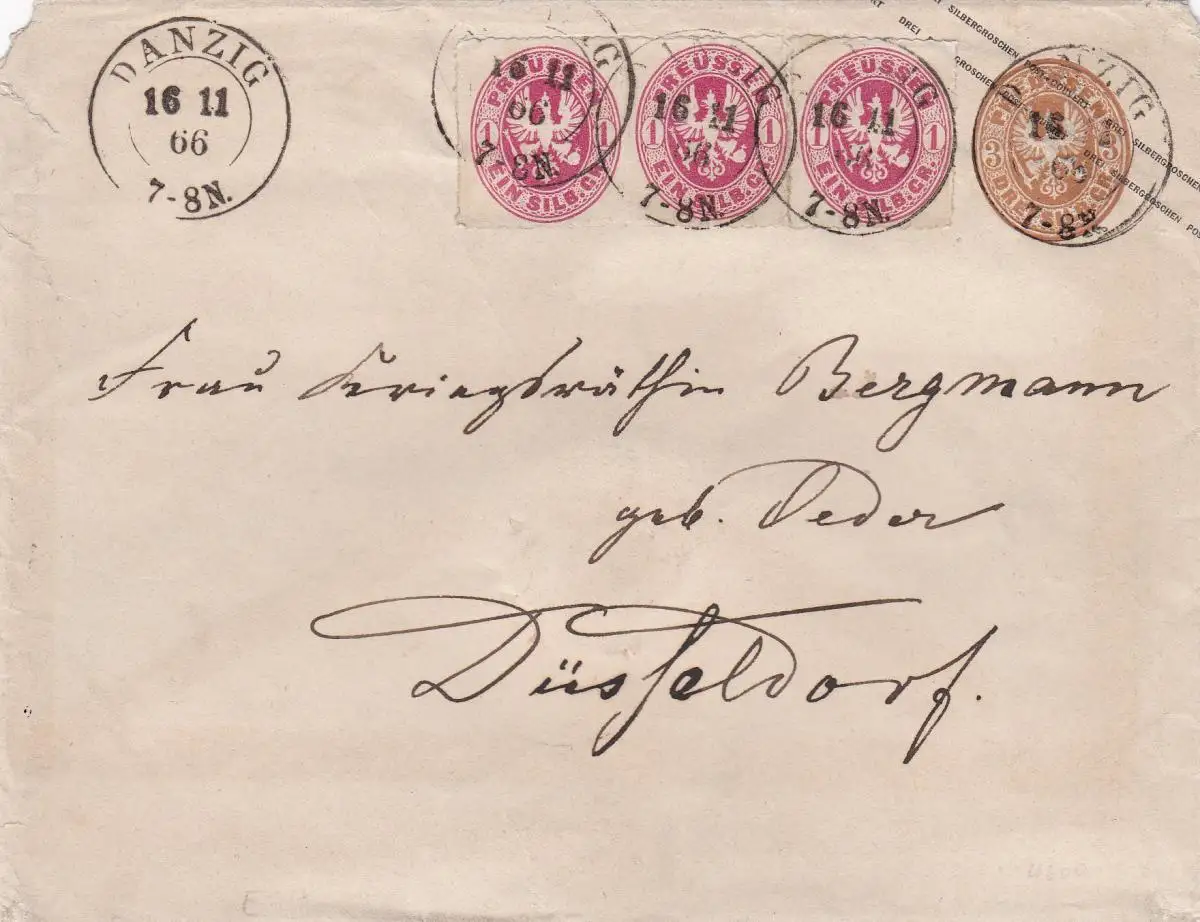 DANZIG
16 11
66
7-8N.
PREUSSEN
1 1
EIN SILB. GR.
16 11
66
7-8N.
PREUSSEN
1 1
EIN SILB. GR.
16 11
66
7-8N.
PREUSSEN
1 1
EIN SILB. GR.
16 11
66
7-8N.
3
16
66
7-8N.
DREI SILBERGROSCHEN POST-COUVERT
DREI SILBERGROSCHEN
Frau Kriegsräthin Bergmann
geb. Oeder
Düsseldorf.